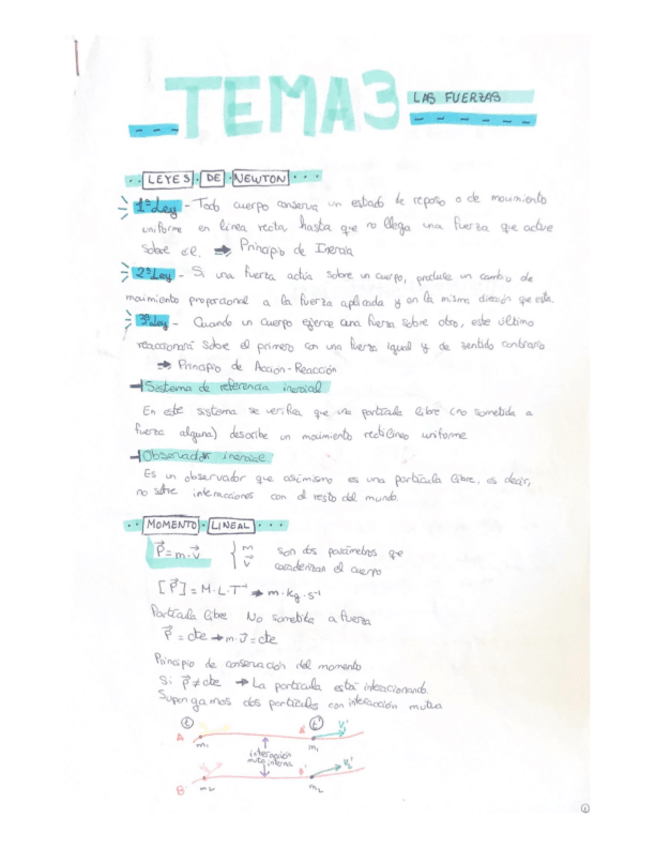 TEMA 3 LAS FUERZAS
LEYES DE NEWTON
1ª Ley - Todo cuerpo conserva un estado de reposo o de movimiento
uniforme en línea recta, hasta que no llega una fuerza que actúe
sobre él. → Principio de Inercia
2ª Ley - Si una fuerza actúa sobre un cuerpo, produce un cambio de
movimiento proporcional a la fuerza aplicada y en la misma dirección que esta.
3ª Ley - Cuando un cuerpo ejerce una fuerza sobre otro, este último
reaccionará sobre el primero con una fuerza igual y de sentido contrario
→ Principio de Acción-Reacción
Sistema de referencia inercial
En este sistema se verifica que una partícula libre (no sometida a
fuerza alguna) describe un movimiento rectilíneo uniforme
Observador inercial
Es un observador que asimismo es una partícula libre, es decir,
no sufre interacciones con el resto del mundo.
MOMENTO LINEAL
P⃗ = m·v⃗ { m v⃗ son dos parámetros que
caracterizan el cuerpo
[P⃗] = M·L·T⁻¹ → m·kg·s⁻¹
Partícula libre No sometida a fuerza
P⃗ = cte → m·v⃗ = cte
Principio de conservación del momento
Si P⃗ ≠ cte → La partícula está interaccionando.
Supongamos dos partículas con interacción mutua
t t'
A m₁ A' m₁ v₁'
interacción
mutua interna
B m₂ B' m₂ v₂'
1